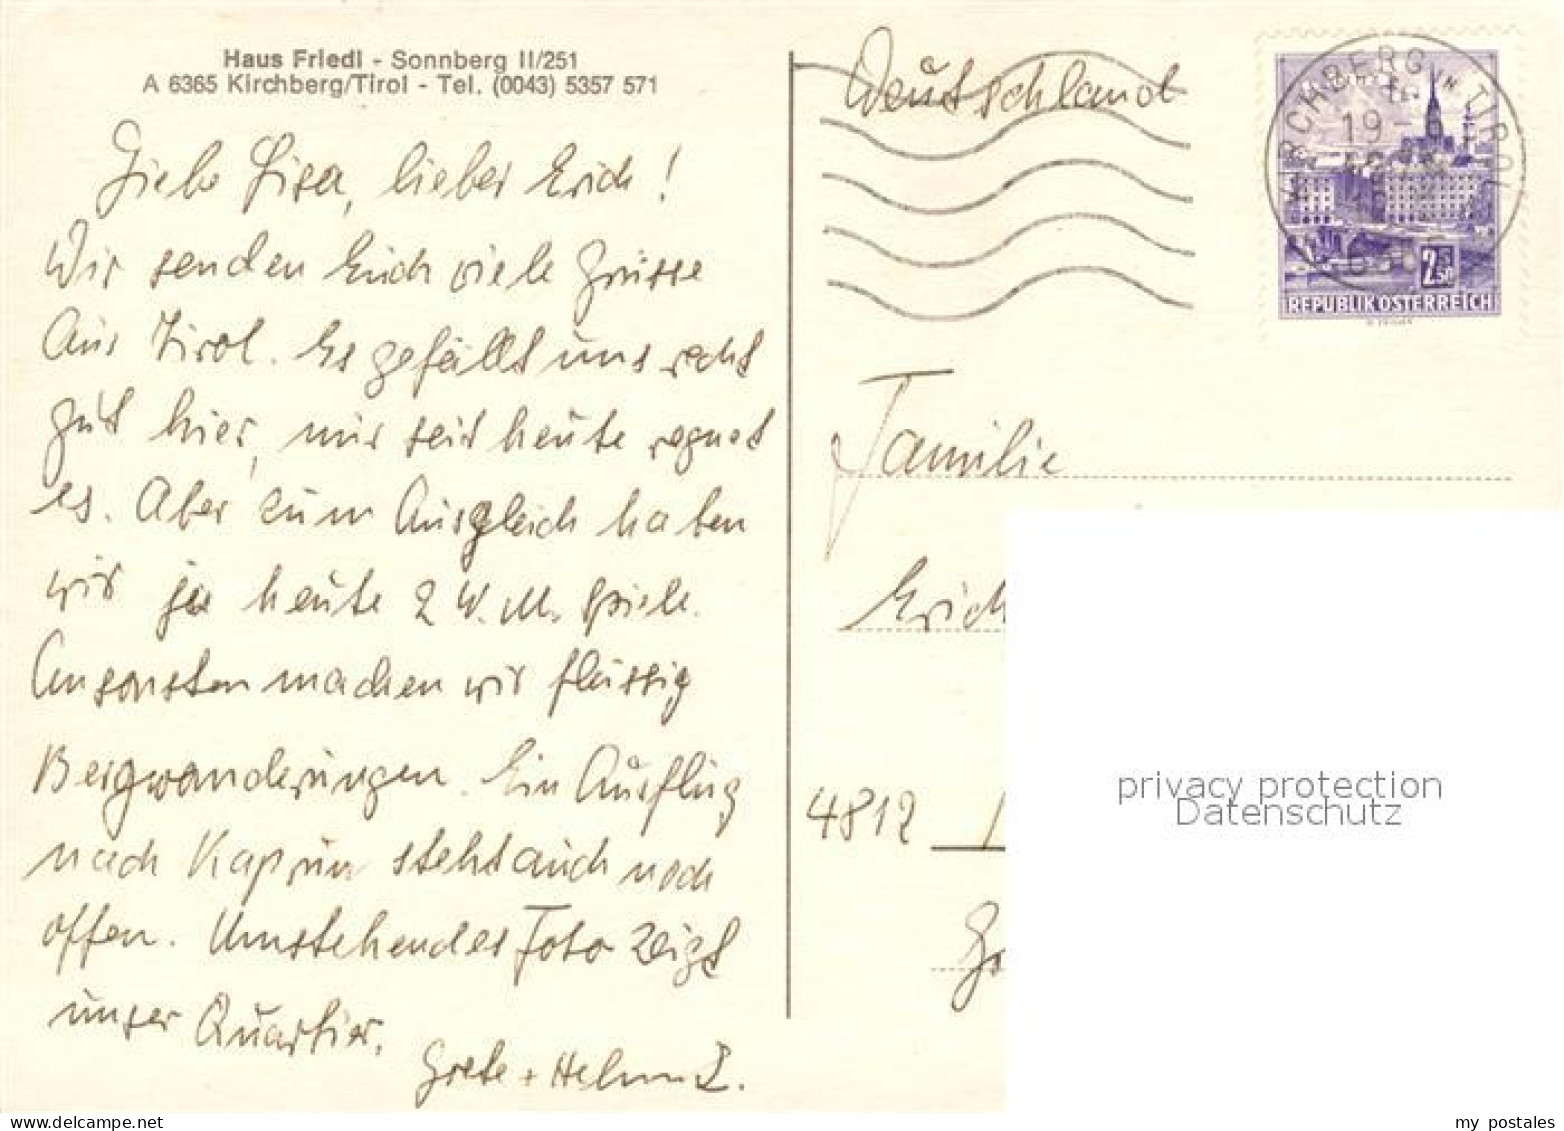 Haus Friedl - Sonnberg II/251
A 6365 Kirchberg/Tirol - Tel. (0043) 5357 571
Liebe Lisa, lieber Erich!
Wir senden Euch viele Grüsse
aus Tirol. Es gefällt uns recht
gut hier, nur seit heute regnet
es. Aber zum Ausgleich haben
wir ja heute 2 W.M. Spiele.
Ansonsten machen wir fleissig
Bergwanderungen. Ein Ausflug
nach Kaprun steht auch noch
offen. Umstehendes Foto zeigt
unser Quartier.
Grete + Helmut.
Deutschland
KIRCHBERG IN TIROL
19
2.50
REPUBLIK ÖSTERREICH
Familie
Erich
4812
privacy protection
Datenschutz
my postales